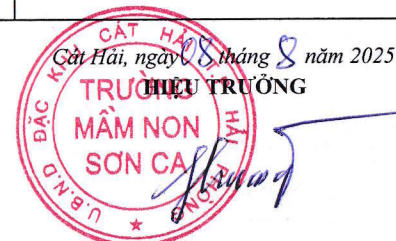 Cát Hải, ngày 08 tháng 8 năm 2025
HIỆU TRƯỞNG
U.B.N.D ĐẶC KHU CÁT HẢI
HẢI PHÒNG
TRƯỜNG
MẦM NON
SƠN CA